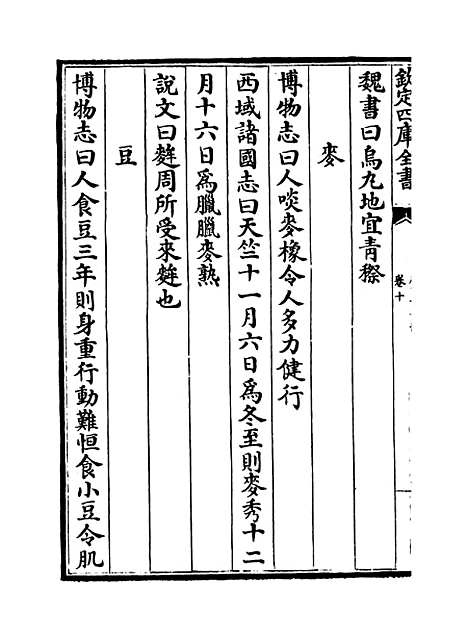 欽定四庫全書
卷十
魏書曰烏丸地宜青穄
麥
博物志曰人啖麥橡令人多力健行
西域諸國志曰天竺十一月六日爲冬至則麥秀十二
月十六日爲臘臘麥熟
說文曰𪎌周所受來𪎌也
豆
博物志曰人食豆三年則身重行動難恒食小豆令肌